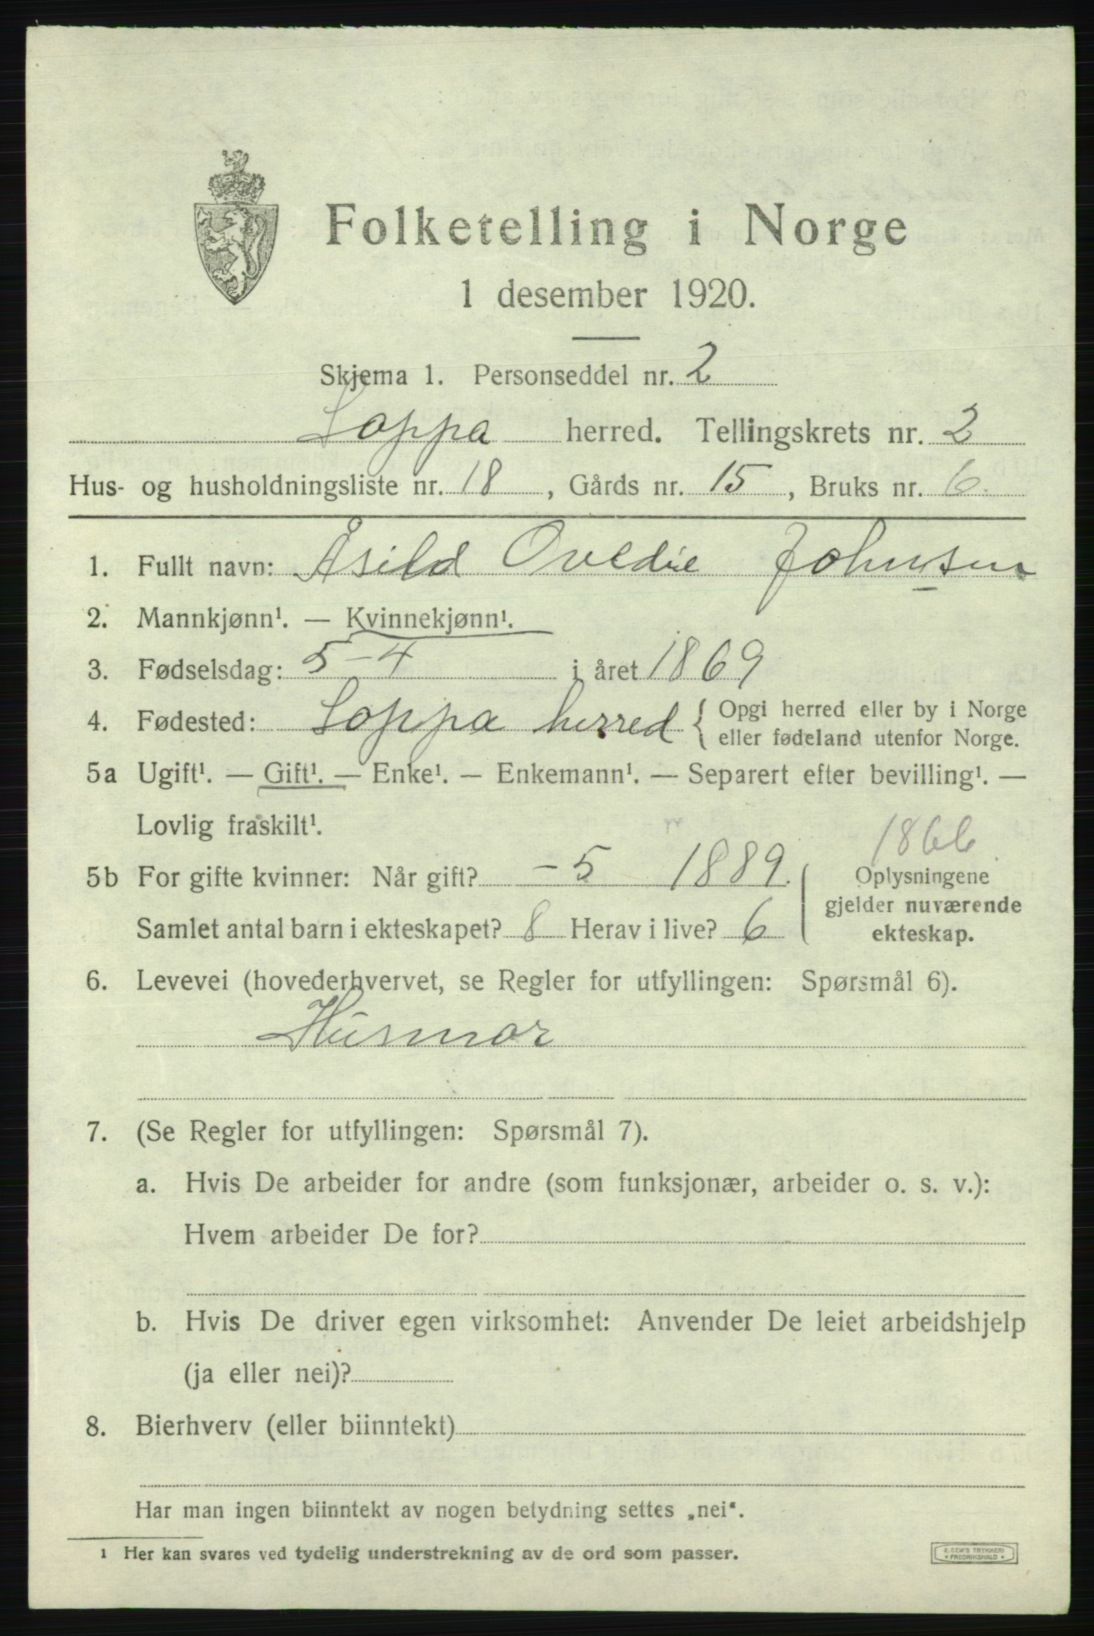 Folketelling i Norge
1 desember 1920.
Skjema 1. Personseddel nr. 2
Loppa herred. Tellingskrets nr. 2
Hus- og husholdningsliste nr. 18, Gårds nr. 15, Bruks nr. 6.
1. Fullt navn: Åsild Ovedie Johnsen
2. Mannkjønn¹. — Kvinnekjønn¹.
3. Fødselsdag: 5-4 i året 1869
4. Fødested: Loppa herred { Opgi herred eller by i Norge
eller fødeland utenfor Norge.
5a Ugift¹. — Gift¹. — Enke¹. — Enkemann¹. — Separert efter bevilling¹. —
Lovlig fraskilt¹.
1866
5b For gifte kvinner: Når gift? -5 1889.
Samlet antal barn i ekteskapet? 8 Herav i live? 6
Oplysningene
gjelder nuværende
ekteskap.
6. Levevei (hovederhvervet, se Regler for utfyllingen: Spørsmål 6).
Husmor
7. (Se Regler for utfyllingen: Spørsmål 7).
a. Hvis De arbeider for andre (som funksjonær, arbeider o. s. v.):
Hvem arbeider De for?
b. Hvis De driver egen virksomhet: Anvender De leiet arbeidshjelp
(ja eller nei)?
8. Bierhverv (eller biinntekt)
Har man ingen biinntekt av nogen betydning settes „nei“.
¹ Her kan svares ved tydelig understrekning av de ord som passer.
E. SEM'S TRYKKERI
FREDRIKSHALD